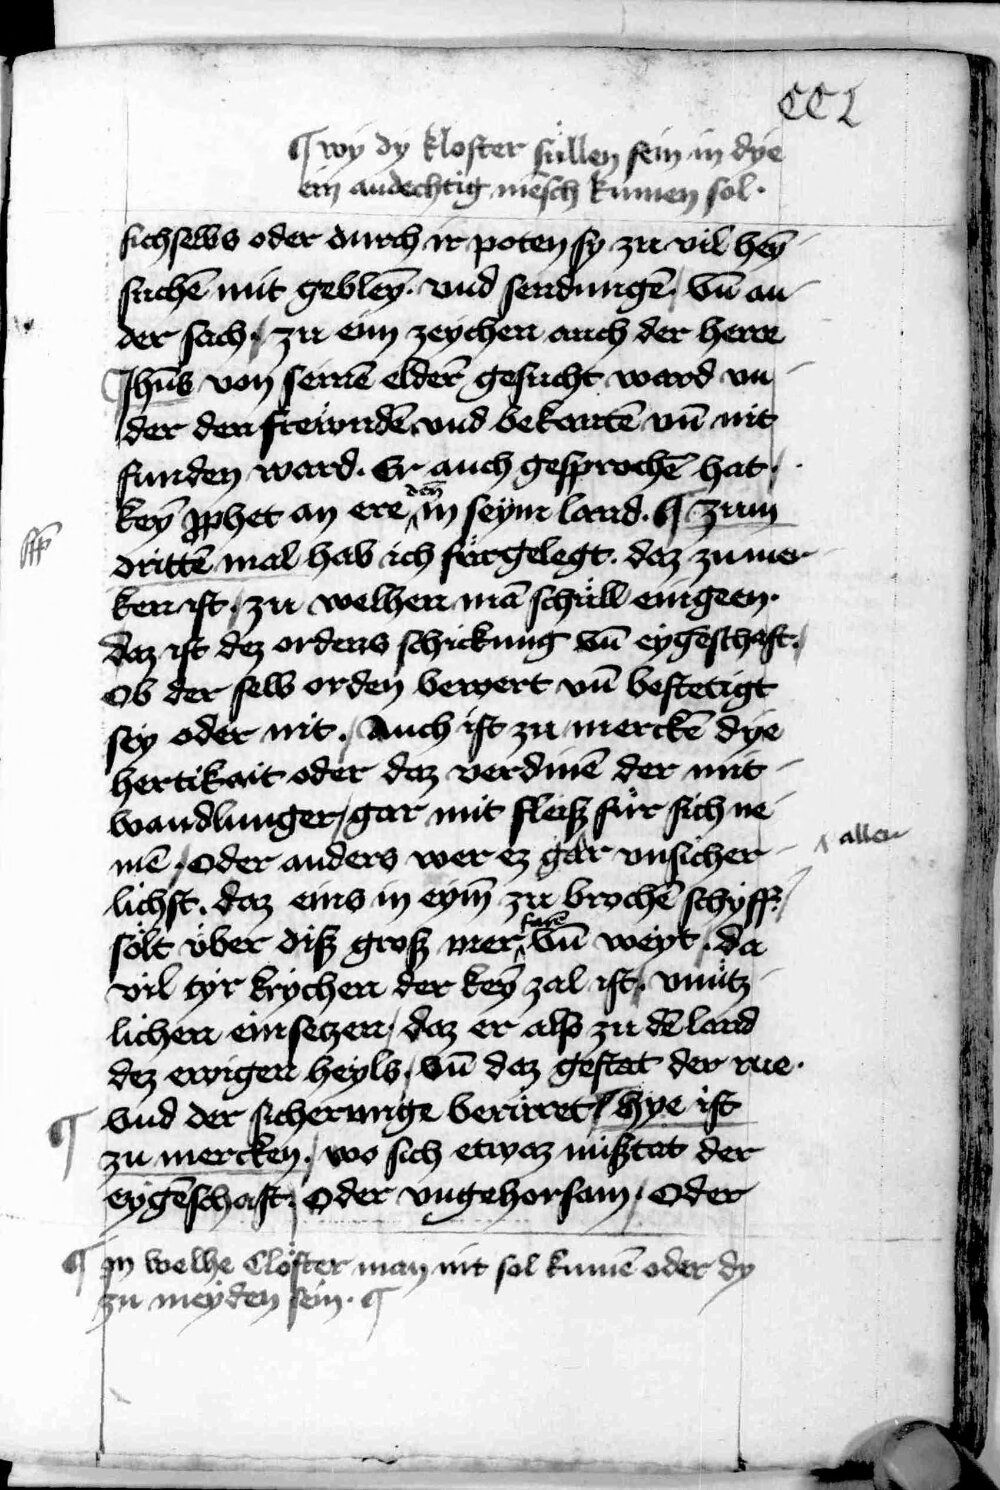 CCL
¶ wy dy kloster süllen sein in dye
ein andechtig mēsch kumen sol.
sichselbs oder durch ir poten sy zu vil heỹ
suchē mit gebleỹ. vnd sendungē. Vñ an
der sach. zu eim zeychen auch der herre
Jhūs von seinē elderē gesucht ward vn
der den frewndē vnd bekantē vñ nit
funden ward. Er auch gesprochē hat.
keỹ ꝓphet an ere deñ in seym land. ¶ Zum
drittē mal hab ich fürgelegt. daz zu mer
ken ist. zu welhen mā schüll eingeen.
daz ist dez ordens schickung vñ eygēschaft.
Ob der selb orden bewert vñ bestetigt
sey oder nit. Auch ist zu merckē dye
hertikait oder daz verdinē der mit
wandlunger gar mit fleiß für sich ne
mē. Oder anders wer ez gar vnsicher
allen
lichst. daz eins in eym zu brochē schyff.
sölt über diß groß mer farē vñ weyt. da
vil tyr krychen der keỹ zal ist. vnütz
lichen einsetzen. daz er also zu dē land
dez ewigen heyls. vñ daz gestat der rue.
vnd der sicherunge berirret. Hye ist
¶ zu mercken. wo sich etwaz mißtat der
eygēschaft. Oder vngehorsam. Oder
¶ In welhe Clöster man nit sol kumē oder dy
zu meyden sein. ¶